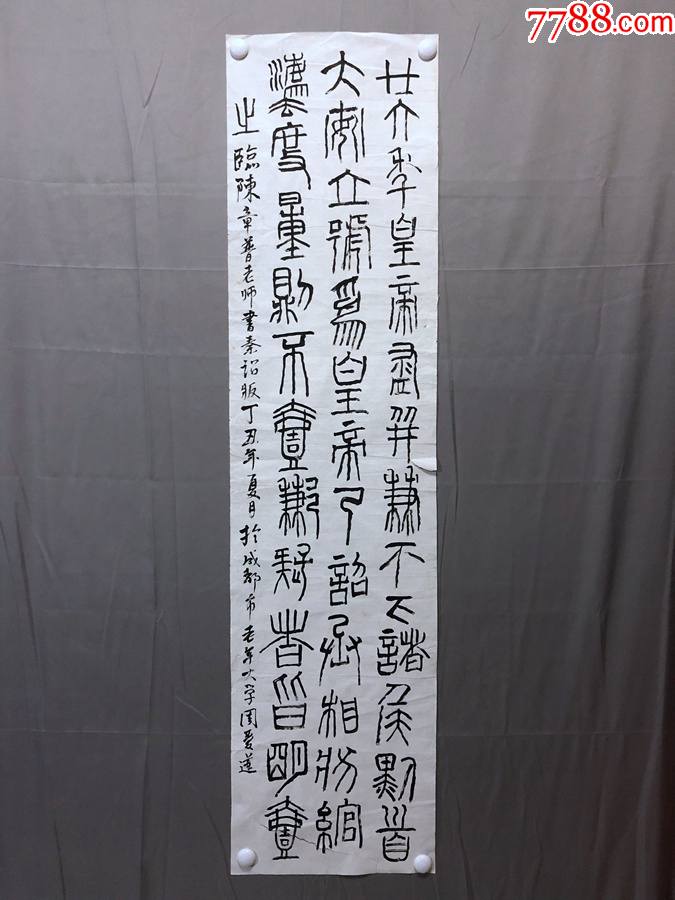 7788.com
廿六年皇帝盡并兼天下諸侯黔首
大安立號爲皇帝乃詔丞相狀綰
灋度量則不壹歉疑者皆明壹
之 臨陳章普老师書秦詔版丁丑年夏月於成都市老年大学周爱蓮